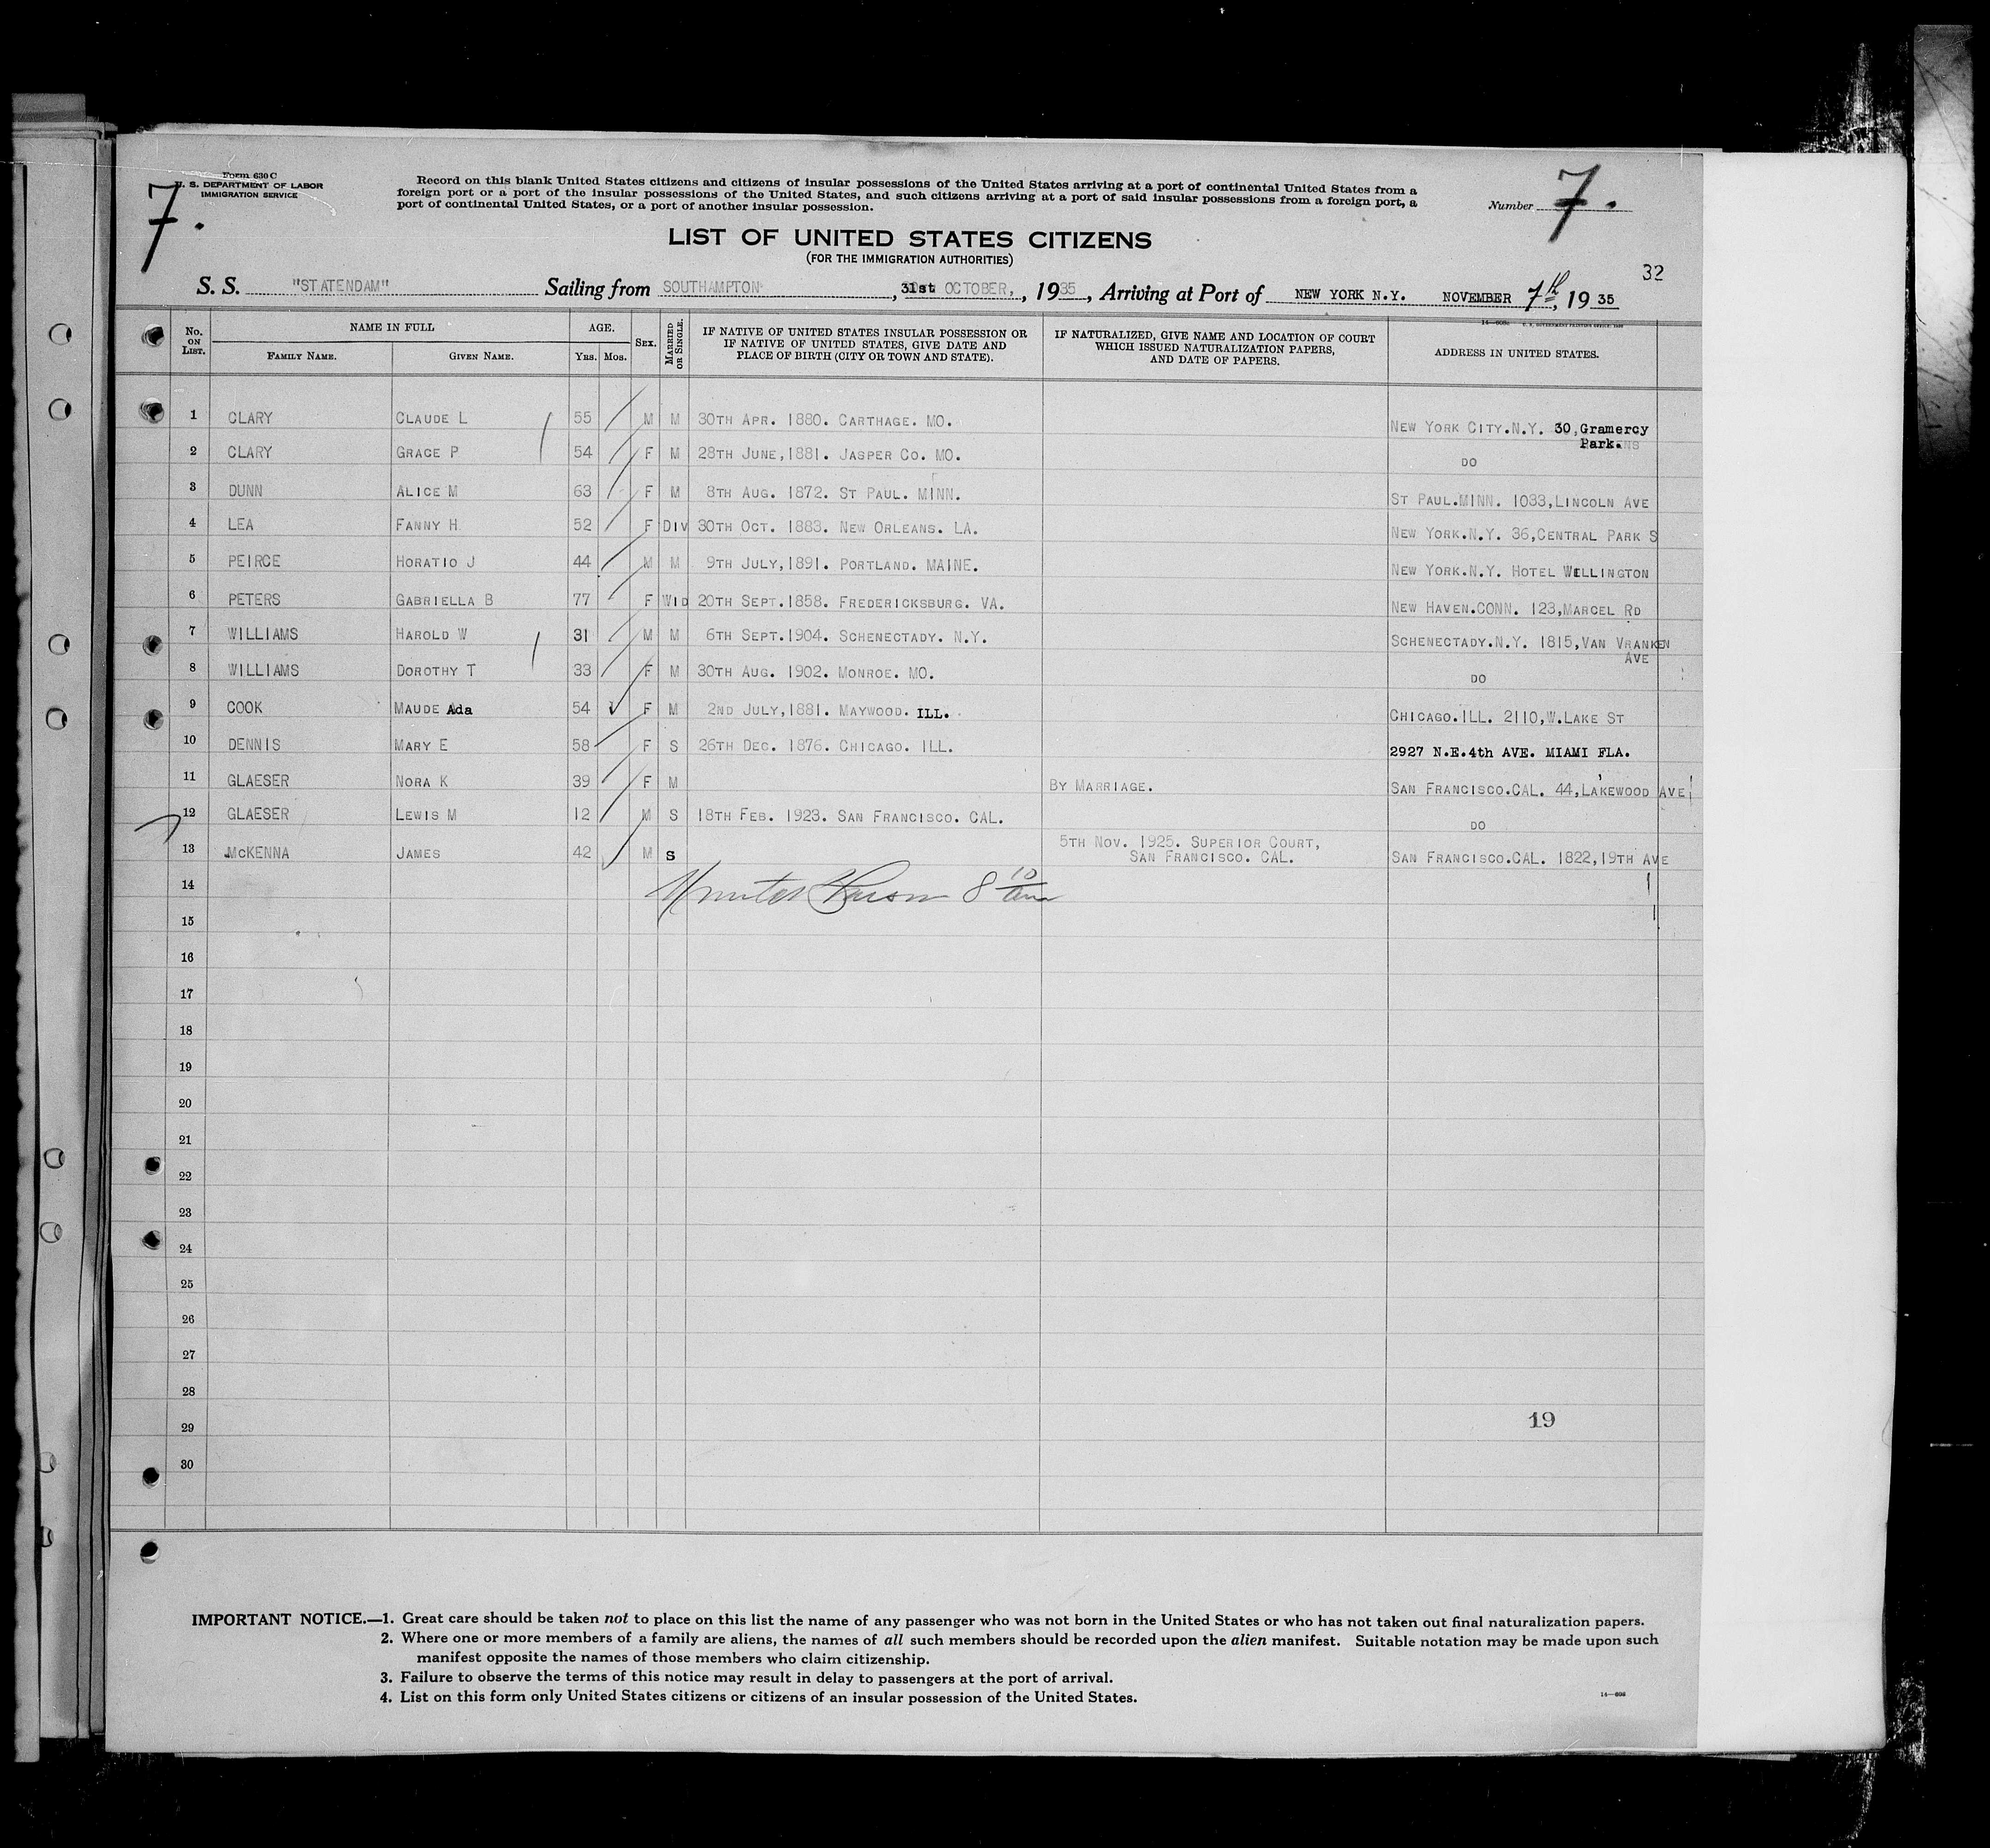 Form 630 C
U. S. DEPARTMENT OF LABOR
IMMIGRATION SERVICE
7.
Record on this blank United States citizens and citizens of insular possessions of the United States arriving at a port of continental United States from a
foreign port or a port of the insular possessions of the United States, and such citizens arriving at a port of said insular possessions from a foreign port, a
port of continental United States, or a port of another insular possession.
Number 7.
LIST OF UNITED STATES CITIZENS
(FOR THE IMMIGRATION AUTHORITIES)
32
S. S. "STATENDAM" Sailing from SOUTHAMPTON, 31st OCTOBER, , 1935, Arriving at Port of NEW YORK N.Y. NOVEMBER 7th, 19 35
No. ON LIST. NAME IN FULL FAMILY NAME. GIVEN NAME. AGE. YRS. MOS. SEX. MARRIED OR SINGLE. IF NATIVE OF UNITED STATES INSULAR POSSESSION OR IF NATIVE OF UNITED STATES, GIVE DATE AND PLACE OF BIRTH (CITY OR TOWN AND STATE). IF NATURALIZED, GIVE NAME AND LOCATION OF COURT WHICH ISSUED NATURALIZATION PAPERS, AND DATE OF PAPERS. ADDRESS IN UNITED STATES.
1 CLARY CLAUDE L 55 M M 30TH APR. 1880. CARTHAGE. MO. NEW YORK CITY.N.Y. 30,Gramercy Park.
2 CLARY GRACE P 54 F M 28TH JUNE,1881. JASPER CO. MO. DO
3 DUNN ALICE M 63 F M 8TH AUG. 1872. ST PAUL. MINN. ST PAUL.MINN. 1033,LINCOLN AVE
4 LEA FANNY H 52 F DIV 30TH OCT. 1883. NEW ORLEANS. LA. NEW YORK.N.Y. 36,CENTRAL PARK S
5 PEIRCE HORATIO J 44 M M 9TH JULY,1891. PORTLAND. MAINE. NEW YORK.N.Y. HOTEL WELLINGTON
6 PETERS GABRIELLA B 77 F WID 20TH SEPT.1858. FREDERICKSBURG. VA. NEW HAVEN.CONN. 123,MARCEL RD
7 WILLIAMS HAROLD W 31 M M 6TH SEPT.1904. SCHENECTADY. N.Y. SCHENECTADY.N.Y. 1815,VAN VRANKEN AVE
8 WILLIAMS DOROTHY T 33 F M 30TH AUG. 1902. MONROE. MO. DO
9 COOK MAUDE Ada 54 F M 2ND JULY,1881. MAYWOOD. ILL. CHICAGO.ILL. 2110,W.LAKE ST
10 DENNIS MARY E 58 F S 26TH DEC. 1876. CHICAGO. ILL. 2927 N.E.4th AVE. MIAMI FLA.
11 GLAESER NORA K 39 F M BY MARRIAGE. SAN FRANCISCO.CAL. 44,LAKEWOOD AVE
12 GLAESER LEWIS M 12 M S 18TH FEB. 1923. SAN FRANCISCO. CAL. DO
13 MCKENNA JAMES 42 M S 5TH NOV. 1925. SUPERIOR COURT, SAN FRANCISCO. CAL. SAN FRANCISCO.CAL. 1822,19TH AVE
14 8 10 am
15
16
17
18
19
20
21
22
23
24
25
26
27
28
29 19
30
IMPORTANT NOTICE.—1. Great care should be taken not to place on this list the name of any passenger who was not born in the United States or who has not taken out final naturalization papers.
2. Where one or more members of a family are aliens, the names of all such members should be recorded upon the alien manifest. Suitable notation may be made upon such
manifest opposite the names of those members who claim citizenship.
3. Failure to observe the terms of this notice may result in delay to passengers at the port of arrival.
4. List on this form only United States citizens or citizens of an insular possession of the United States.